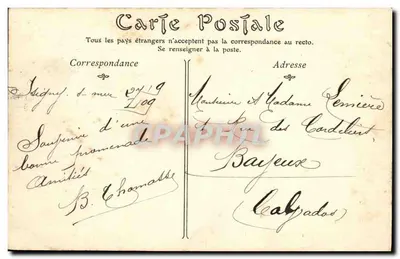 Carte Postale
Tous les pays étrangers n'acceptent pas la correspondance au recto.
Se renseigner à la poste.
Correspondance
Isigny s mer
Souvenir d'une
bonne promenade
Amitiés
B. Thomasse
Adresse
Monsieur et Madame
Rue des Cordeliers
Bayeux
(Calvados)